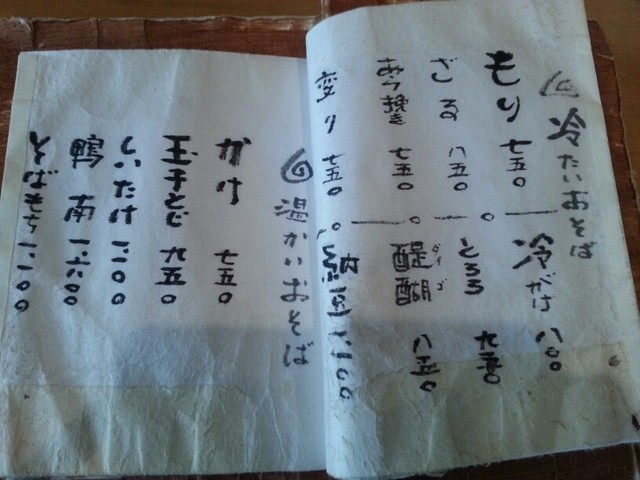 冷たいおそば
もり 七五〇
ざる 八五〇
あら挽き 七五〇
変り 七五〇
冷がけ 八〇〇
とろろ 九五〇
醍醐 ダイゴ 八五〇
納豆 一、一〇〇
温かいおそば
かけ 七五〇
玉子とじ 九五〇
しいたけ 一、一〇〇
鴨南 一、六〇〇
そばもち 一、一〇〇